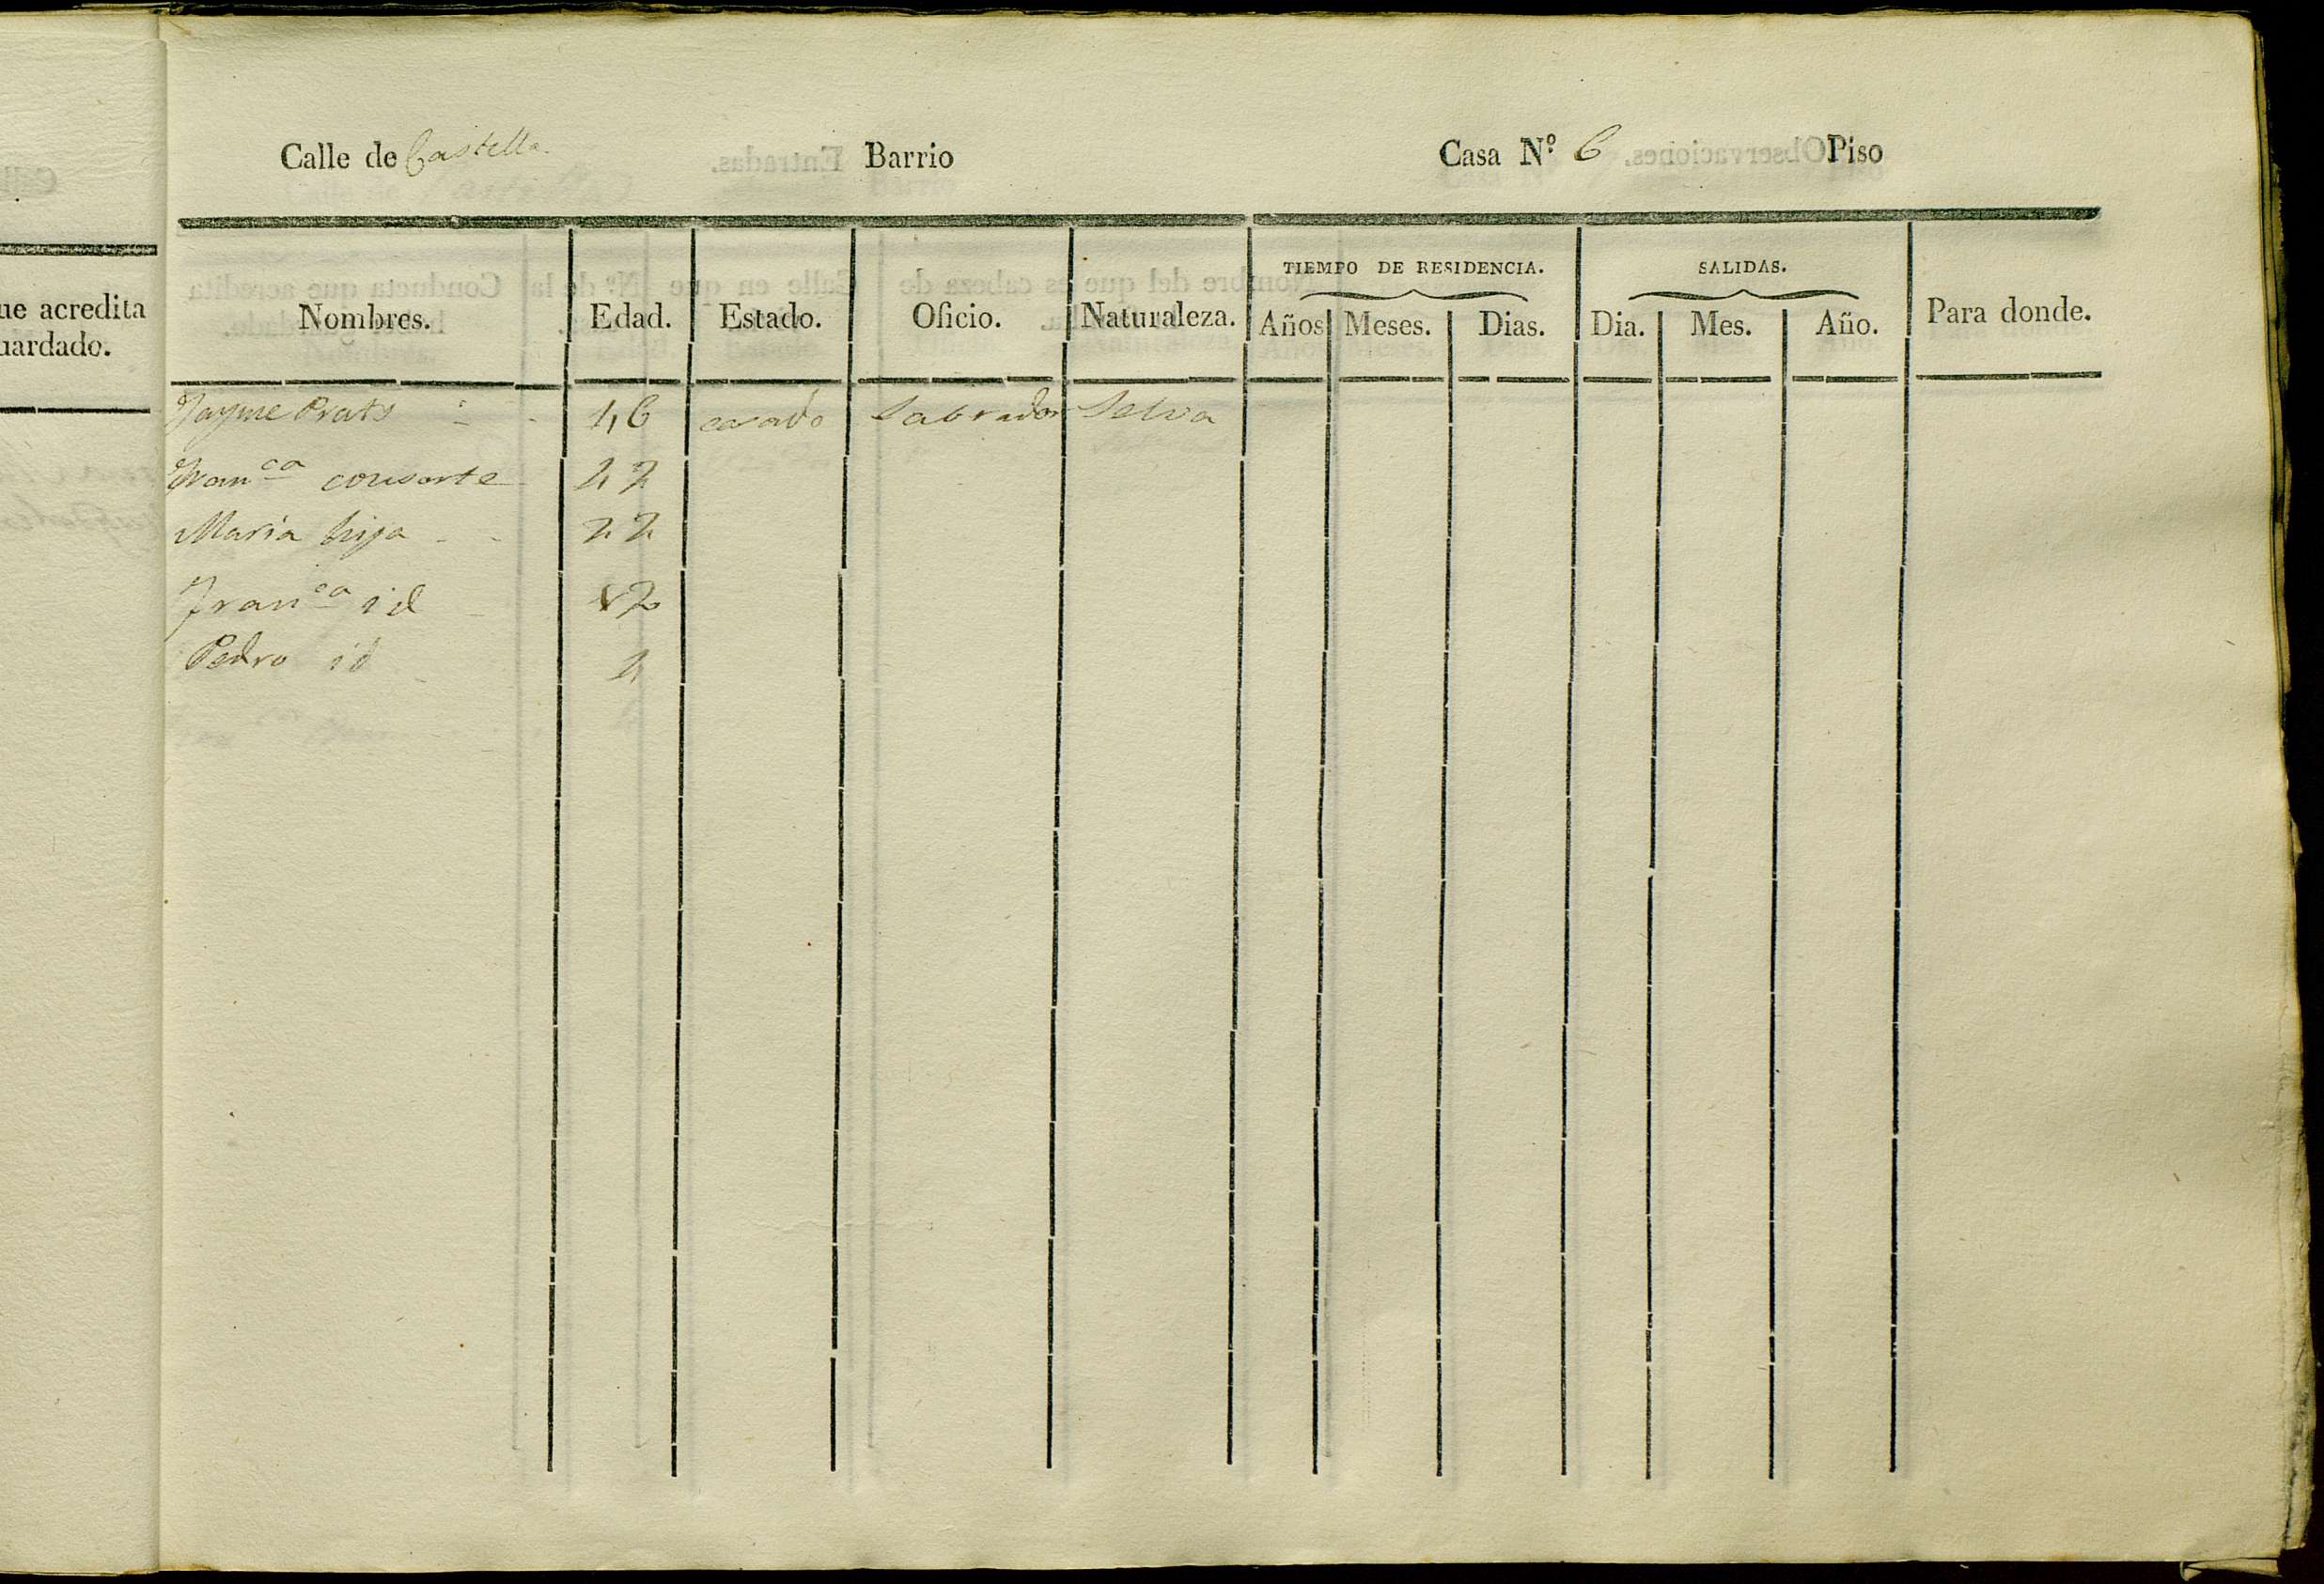 ue acredita
uardado.
Calle de Castella. Barrio Casa Nº 6 Piso
TIEMPO DE RESIDENCIA. SALIDAS.
Nombres. Edad. Estado. Oficio. Naturaleza. Años Meses. Dias. Dia. Mes. Año. Para donde.
Jayme Prats 46 casado Labrador Selva
Fran.ca consorte 42
Maria hija 22
Fran.ca id 12
Pedro id 4